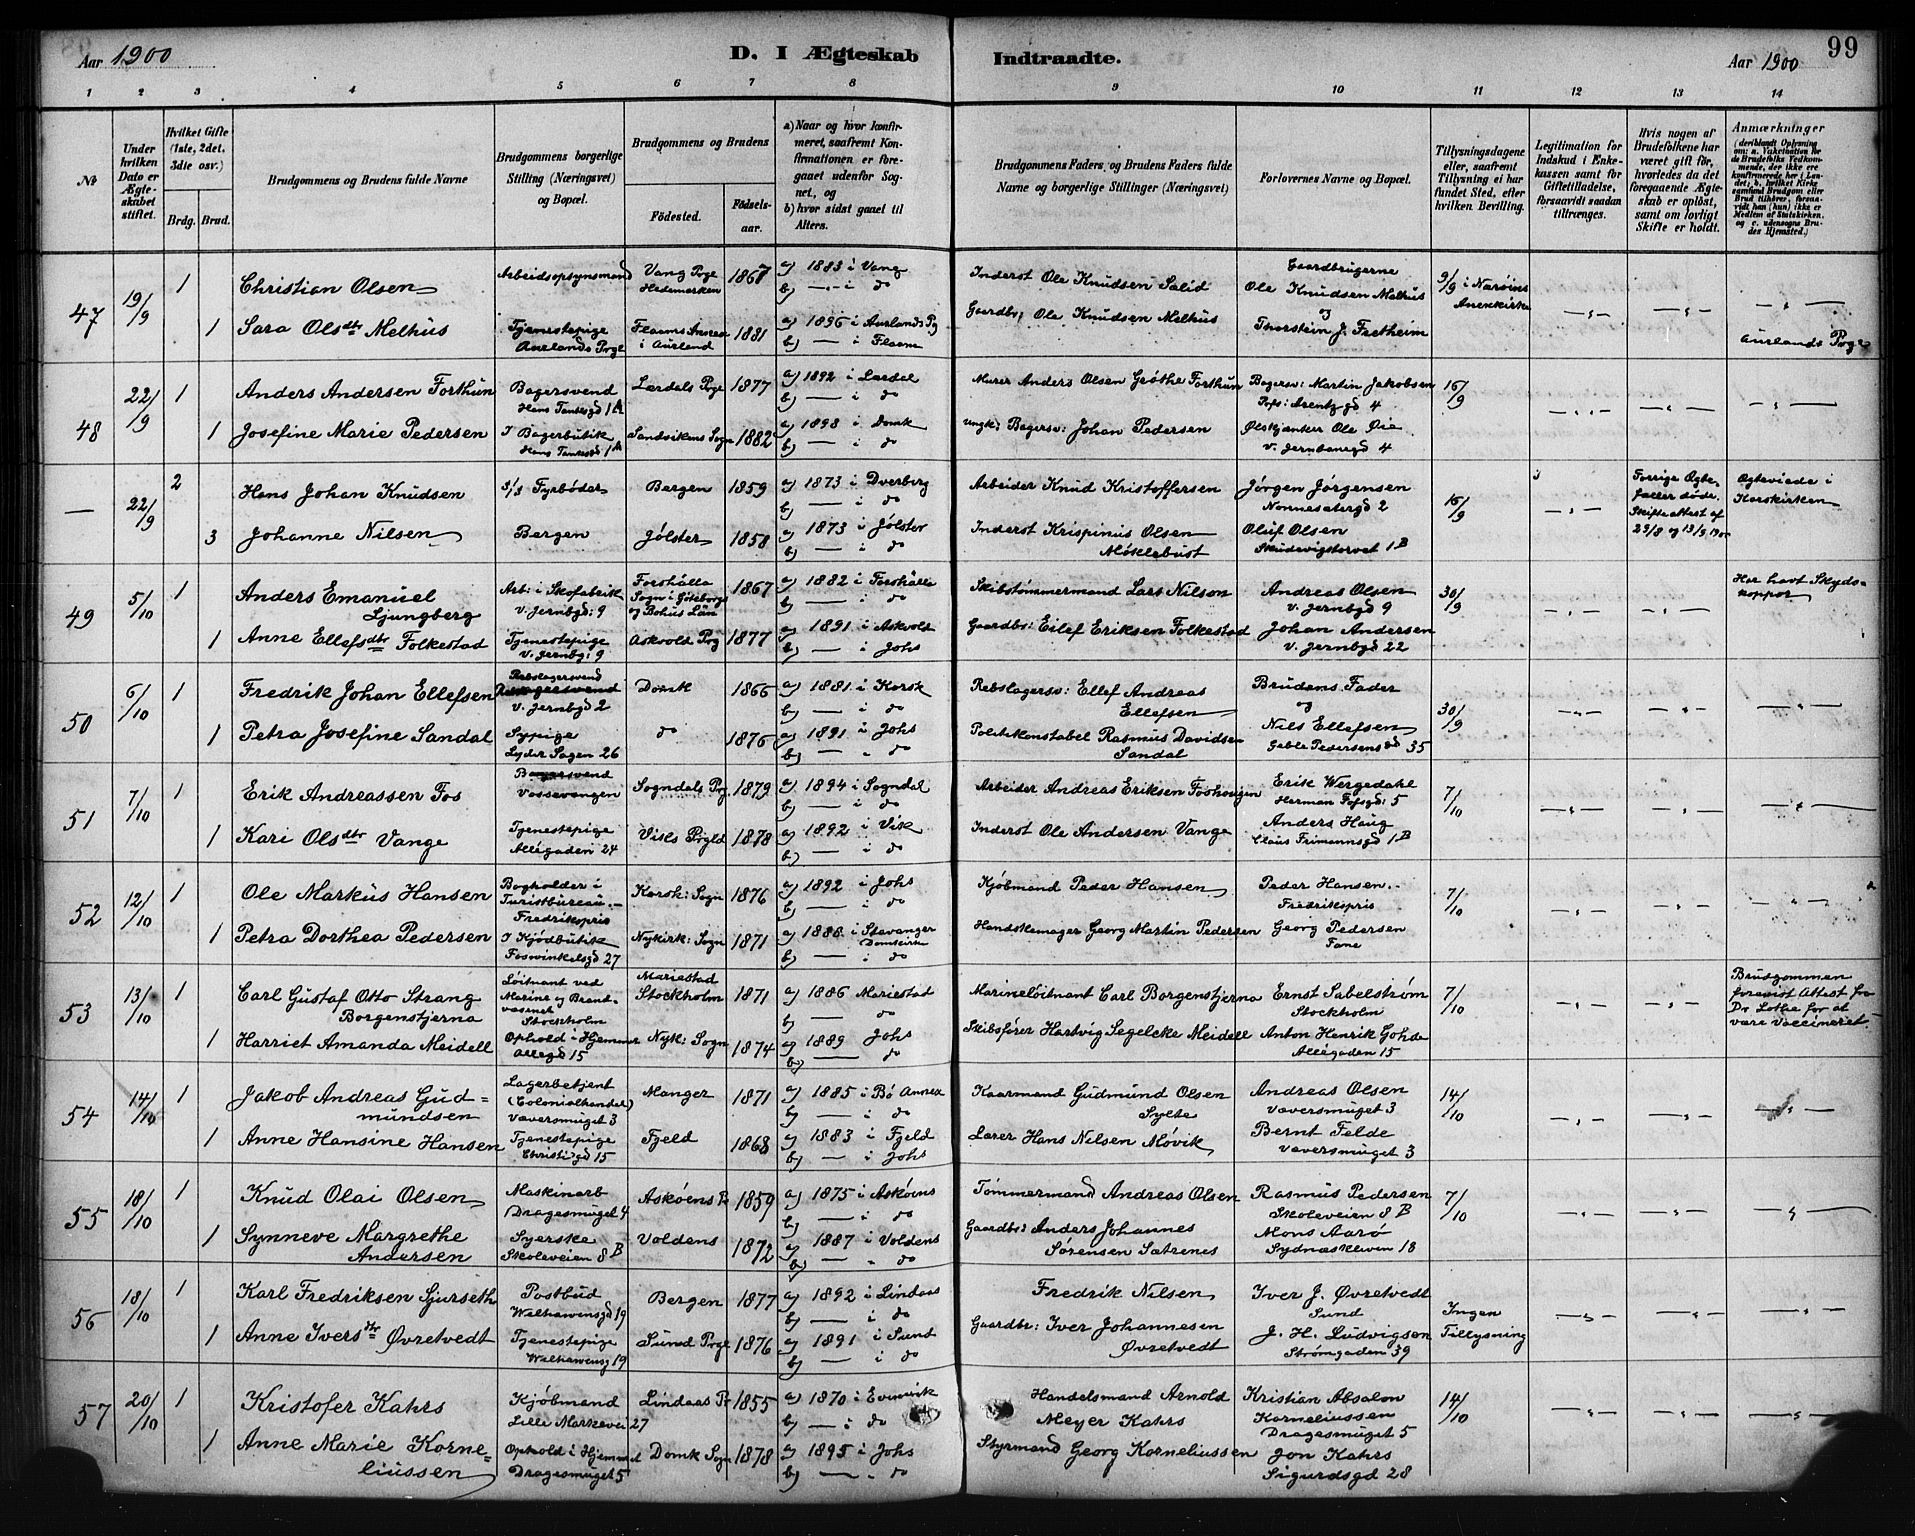 Aar 1900
D. I Ægteskab
Indtraadte.
Aar 1900
99
1 2 3 4 5 6 7 8 9 10 11 12 13 14
№
Under hvilken Dato er Ægteskabet stiftet.
Hvilket Gifte (1ste, 2det, 3die osv.)
Brdg. Brud.
Brudgommens og Brudens fulde Navne
Brudgommens borgerlige Stilling (Næringsvei) og Bopæl.
Brudgommens og Brudens
Fødested.
Fødselsaar.
a) Naar og hvor konfirmeret, saafremt Konfirmationen er foregaaet udenfor Sognet, og
b) hvor sidst gaaet til Alters.
Brudgommens Faders og Brudens Faders fulde Navne og borgerlige Stillinger (Næringsvei)
Forlovernes Navne og Bopæl.
Tillysningsdagene eller, saafremt Tillysning ei har fundet Sted, efter hvilken Bevilling.
Legitimation for Indskud i Enkekassen samt for Giftetilladelse, forsaavidt saadan tiltrænges.
Hvis nogen af Brudefolkene har været gift før, hvorledes da det foregaaende Ægteskab er opløst, samt om lovligt Skifte er holdt.
Anmærkninger
47 19/9 1 Christian Olsen Arbeidsopsynsmand Vang Pge Hedemarken 1867 a) 1883 i Vang b) — i do Inderst Ole Knudsen Salid Gaardbrugerne Ole Knudsen Melhus 9/9 i Narøins Anexkirke
1 Sara Olsdtr Melhus Tjenestepige Aurlands Pge Flaams Annex i Aurland 1881 a) 1896 i Aurlands Pg b) — i Flaam Gaardbr: Ole Knudsen Melhus og Thorstein J. Fretheim Aurlands Pge
48 22/9 1 Anders Andersen Forthun Bagersvend Hans Tanksgd 1A Lærdals Pge 1877 a) 1892 i Lærdal b) — i do Murer Anders Olsen Grøthe Forthun Bagersv: Martin Jakobsen Pofs: Arentzgd 4 16/9
1 Josefine Marie Pedersen I Bagerbutik Hans Tanksgd 1A Sandvikens Sogn 1882 a) 1898 i Domk b) — i do Ungk: Bagersv: Johan Pedersen Ølskjænker Ole Øie v. Jernbanegd 4
— 22/9 2 Hans Johan Knudsen s/s Fyrbøder Bergen 1859 a) 1873 i Dverberg b) — i do Arbeider Knud Kristoffersen Jørgen Jørgensen Nonnesætergd 2 16/9 Forrige Ægtefæller døde. Skifteattest af 25/8 og 13/9 1900 Ægteviede i Korskirken
3 Johanne Nilsen Bergen Jølster 1858 a) 1873 i Jølster b) — i do Inderst Krispinus Olsen Møklebust Oluf Olsen Skudevigstorvet 1B
49 5/10 1 Anders Emanuel Ljungberg Arb: i Skofabrik v. Jernbgd: 9 Forshälla Sogn i Göteborgs og Bohus Län 1867 a) 1882 i Forshälla b) — i do Skibstømmermand Lars Nilson Andreas Olsen v. Jernbgd 9 30/9 Har havt Skydskopper
1 Anne Ellefsdtr Folkestad Tjenestepige v. Jernbg: 9 Askvold Pg 1877 a) 1891 i Askvold b) — i Johs Gaardbr: Eilef Eriksen Folkestad Johan Andersen v. Jernbgd 22
50 6/10 1 Fredrik Johan Ellefsen Rebslagersvend v. Jernbgd 2 Domk 1866 a) 1881 i Korsk b) — i do Rebslagersv: Ellef Andreas Ellefsen Brudens Fader og 30/9
1 Petra Josefine Sandal Sypige Lyder Sagen 26 do 1876 a) 1891 i Johs b) — „ do Politikonstabel Rasmus Davidsen Sandal Nils Ellefsen Gable Pedersensgd 35
51 7/10 1 Erik Andreassen Fos Bagersvend Vossevangen Sogndals Pg 1879 a) 1894 i Sogndal b) — i do Arbeider Andreas Eriksen Foshougen Erik Wergedahl Herman Fofsgd: 5 7/10
1 Kari Olsdtr Vange Tjenestepige Allégaden 24 Viks Prgld 1878 a) 1892 i Vik b) — i do Inderst Ole Andersen Vange Anders Haug Claus Frimannsgd 1B
52 12/10 1 Ole Markus Hansen Bogholder i Turistbureau Fredrikspris Korsk: Sogn 1876 a) 1892 i Johs b) — i do Kjøbmand Peder Hansen Peder Hansen. Fredrikspris 7/10
1 Petra Dorthea Pedersen I Kjødbutik Foswinkelsgd 27 Nykirk: Sogn 1871 a) 1888 i Stavanger Domkirke b) — „ do Handskemager Georg Martin Pedersen Georg Pedersen Fane
53 13/10 1 Carl Gustaf Otto Strang Borgenstjerna Løitnant ved Marine og Brandvæsenet Stockholm Mariestad Stockholm 1871 a) 1886 Mariestad b) — do Marineløitnant Carl Borgenstjerna Ernst Sabelstrøm Stockholm 7/10 Brudgommen forevist Attest fra Dr Lothe for at være Vaccineret
1 Harriet Amanda Meidell Ophold i Hjemmet Allegd 15 Nyk: Sogn 1874 a) 1889 Johs b) — do Skibsfører Hartvig Segelcke Meidell Anton Henrik Gohde Allégaden 15
54 14/10 1 Jakob Andreas Gudmundsen Lagerbetjent (Colonialhandel) Vaversmuget 3 Manger 1871 a) 1885 i Bø Annex b) — i do Kaarmand Gudmund Olsen Sylte Andreas Olsen Vaversmuget 3 14/10
1 Anne Hansine Hansen Tjenestepige Christiegd 15 Fjeld 1868 a) 1883 i Fjeld b) — i Johs Lærer Hans Nilsen Møvik Bernt Felde Vaversmuget 3
55 18/10 1 Knud Olai Olsen Maskinarb Dragesmuget 4 Askøens P 1859 a) 1875 i Askøens b) — i do Tømmermand Andreas Olsen Rasmus Pedersen Skoleveien 8 B 7/10
1 Synneve Margrethe Andersen Syerske Skoleveien 8 B Voldens 1872 a) 1887 i Voldens b) — „ do Gaardbr: Anders Johannes Sørensen Sætrenes Mons Aarø Sydnæskleven 18
56 18/10 1 Karl Fredriksen Sjurseth Postbud Welhavensgd 19 Bergen 1877 a) 1892 i Lindaas b) — i do Fredrik Nilsen Iver J. Øvretvedt Sund Ingen Tillysning
1 Anne Iversdtr Øvretvedt Tjenestepige Welhavensg 19 Sund Pge 1876 a) 1891 i Sund b) — i do Gaardbr: Iver Johannesen Øvretvedt J. H. Ludvigsen Strømgaden 39
57 20/10 1 Kristofer Kahrs Kjøbmand Lille Markevei 27 Lindaas Pr 1855 a) 1870 i Evinvik b) — i do Handelsmand Arnold Meyer Kahrs Kristian Absalon Korneliussen Dragesmuget 5 14/10
1 Anne Marie Korneliussen Ophold i Hjemmet Dragesmuget 5 Domk Sogn 1878 a) 1895 i Johs b) — „ do Styrmand Georg Korneliussen Jon Kahrs Sigurdsgd 28